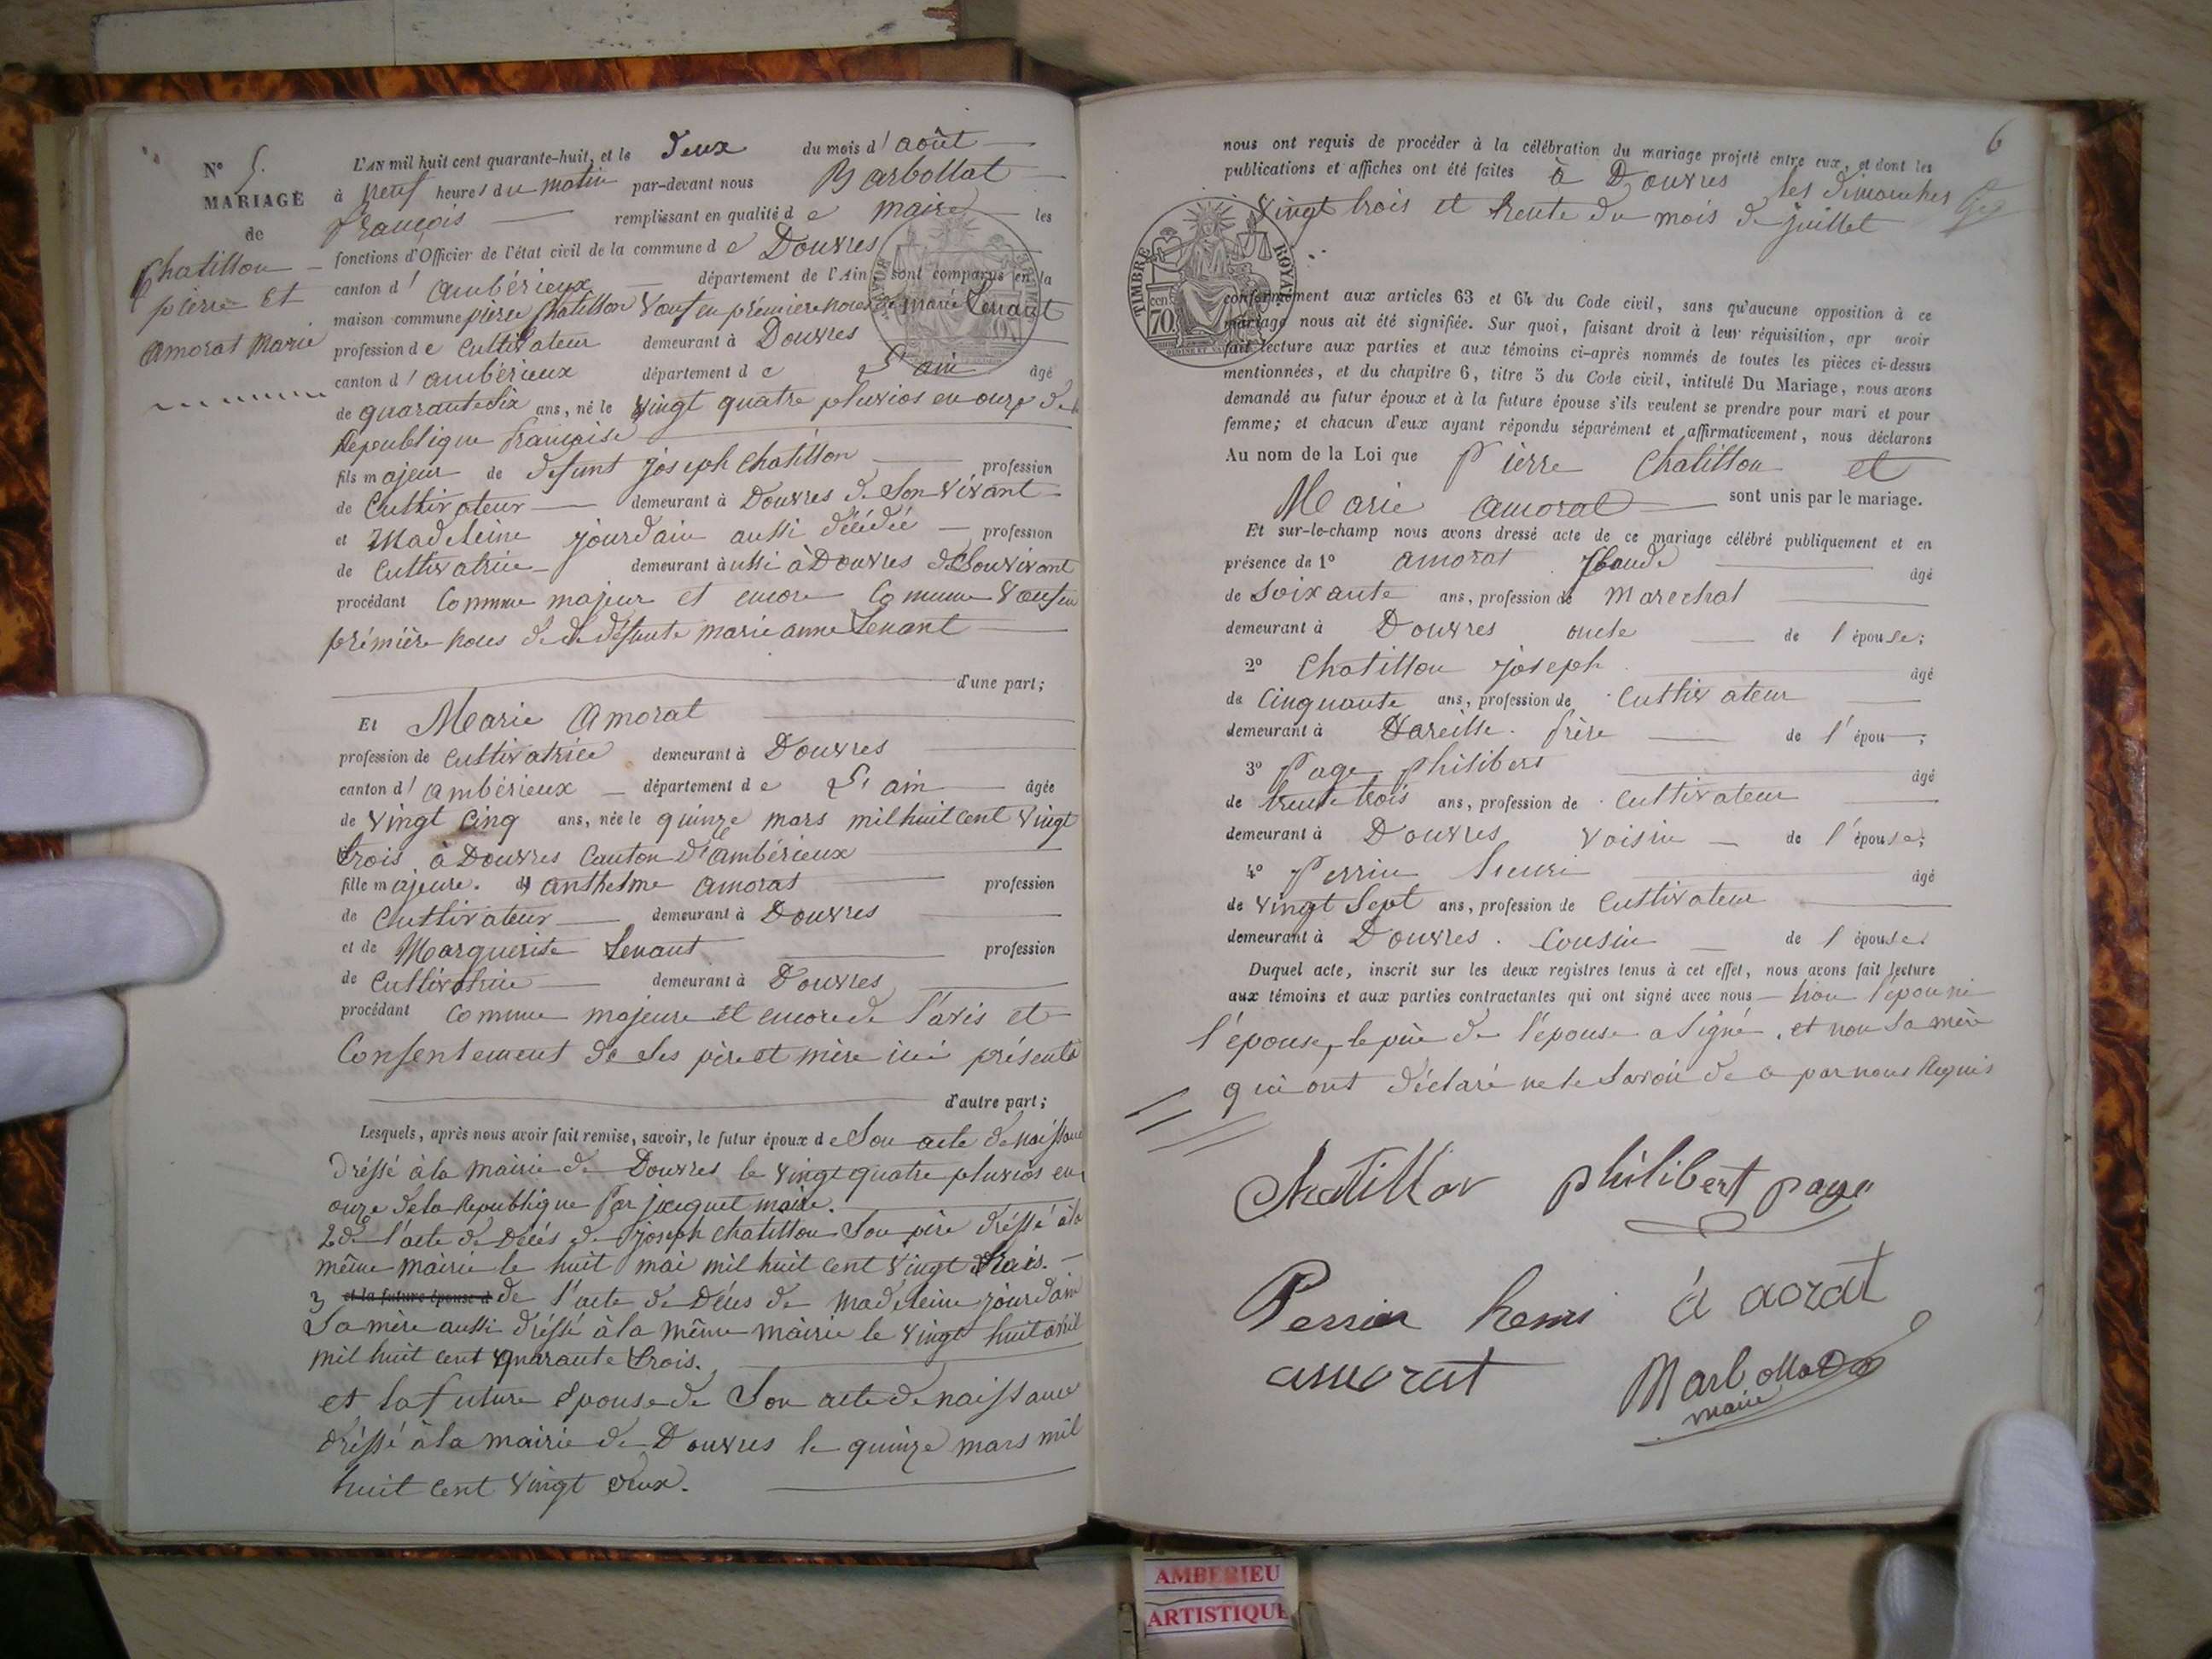 N° 5.
MARIAGE
de
Chatillon
pierre et
amorat Marie
L'AN mil huit cent quarante-huit, et le deux du mois d'août
à neuf heures du matin par-devant nous Barbollat
françois remplissant en qualité de maire les
fonctions d'Officier de l'état civil de la commune de Douvres
canton d'ambérieux département de l'Ain sont comparus en la
maison commune pierre chatillon veuf en première noces de marie Venant
profession de cultivateur demeurant à Douvres
canton d'ambérieux département de L'ain âgé
de quarante six ans, né le vingt quatre pluvios en onze de la
Republique française
fils majeur de defunt joseph chatillon profession
de Cultivateur demeurant à Douvres de son vivant
et Madeleine jourdain aussi décédée profession
de cultivatrice demeurant aussi à Douvres de son vivant
procédant comme majeur et encore comme veuf en
première noces de défunte marie anne Venant
d'une part;
Et Marie Amorat
profession de cultivatrice demeurant à Douvres
canton d'ambérieux département de L'ain âgée
de vingt cinq ans, née le quinze mars mil huit cent vingt
trois à Douvres Canton d'ambérieux
fille majeure. d' anthelme amorat profession
de cultivateur demeurant à Douvres
et de Marguerite Venant profession
de cultivatrice demeurant à Douvres
procédant comme majeure et encore de l'avis et
Consentement de ses père et mère ici présents
d'autre part;
Lesquels, après nous avoir fait remise, savoir, le futur époux de Son acte de naissance
dréssé à la mairie de Douvres le vingt quatre pluvios en
onze de la Republique Par jacquet maire.
2 de l'acte de Décés de joseph chatillon son père dréssé à la
même mairie le huit mai mil huit cent vingt trois.
3 et la future épouse d de l'acte de Décés de madeleine jourdain
Sa mère aussi dréssé à la même mairie le vingt huit avril
mil huit cent quarante trois.
et la future épouse de Son acte de naissance
dréssé à la mairie de Douvres le quinze mars mil
huit cent vingt deux.
6
nous ont requis de procéder à la célébration du mariage projeté entre eux, et dont les
publications et affiches ont été faites à Douvres les dimanches
vingt trois et trente du mois de juillet
TIMBRE ROYAL
70
conformément aux articles 63 et 64 du Code civil, sans qu'aucune opposition à ce
mariage nous ait été signifiée. Sur quoi, faisant droit à leur réquisition, apr avoir
fait lecture aux parties et aux témoins ci-après nommés de toutes les pièces ci-dessus
mentionnées, et du chapitre 6, titre 5 du Code civil, intitulé Du Mariage, nous avons
demandé au futur époux et à la future épouse s'ils veulent se prendre pour mari et pour
femme; et chacun d'eux ayant répondu séparément et affirmativement, nous déclarons
Au nom de la Loi que Pierre Chatillon et
Marie amorat sont unis par le mariage.
Et sur-le-champ nous avons dressé acte de ce mariage célébré publiquement et en
présence de 1° amorat Claude âgé
de Soixante ans, profession de Marechal
demeurant à Douvres oncle de l'épouse;
2° Chatillon joseph âgé
de Cinquante ans, profession de Cultivateur
demeurant à Vareille. frère de l'épou ;
3° Page philibert âgé
de trente trois ans, profession de Cultivateur
demeurant à Douvres voisin de l'épouse;
4° Perrin henri âgé
de vingt sept ans, profession de Cultivateur
demeurant à Douvres. Cousin de l'épouse.
Duquel acte, inscrit sur les deux registres tenus à cet effet, nous avons fait lecture
aux témoins et aux parties contractantes qui ont signé avec nous non l'épou ni
l'épouse, le père de l'épouse a signé. et non sa mère
qui ont déclaré ne le savoir de ce par nous Requis
Chatillon philibert page
Perrin henri a aorat
amorat Barbollat
maire
AMBERIEU
ARTISTIQUE